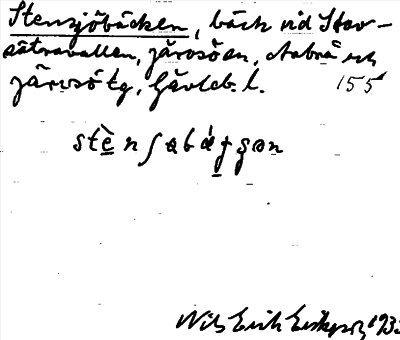 Stensjöbäcken, bäck vid Stor-
sätravallen, Järvsö sn, Arbrå och
Järvsö tg, Gävleb. l. 155
stènʃabággan
Nils Erik Eriksson 193